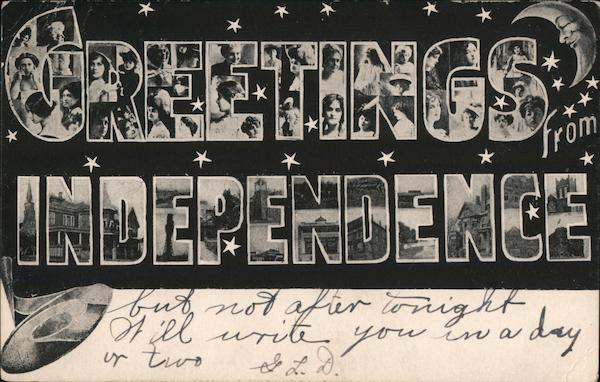 GREETINGS
from
INDEPENDENCE
but not after tonight
Will write you in a day
or two G. L. D.